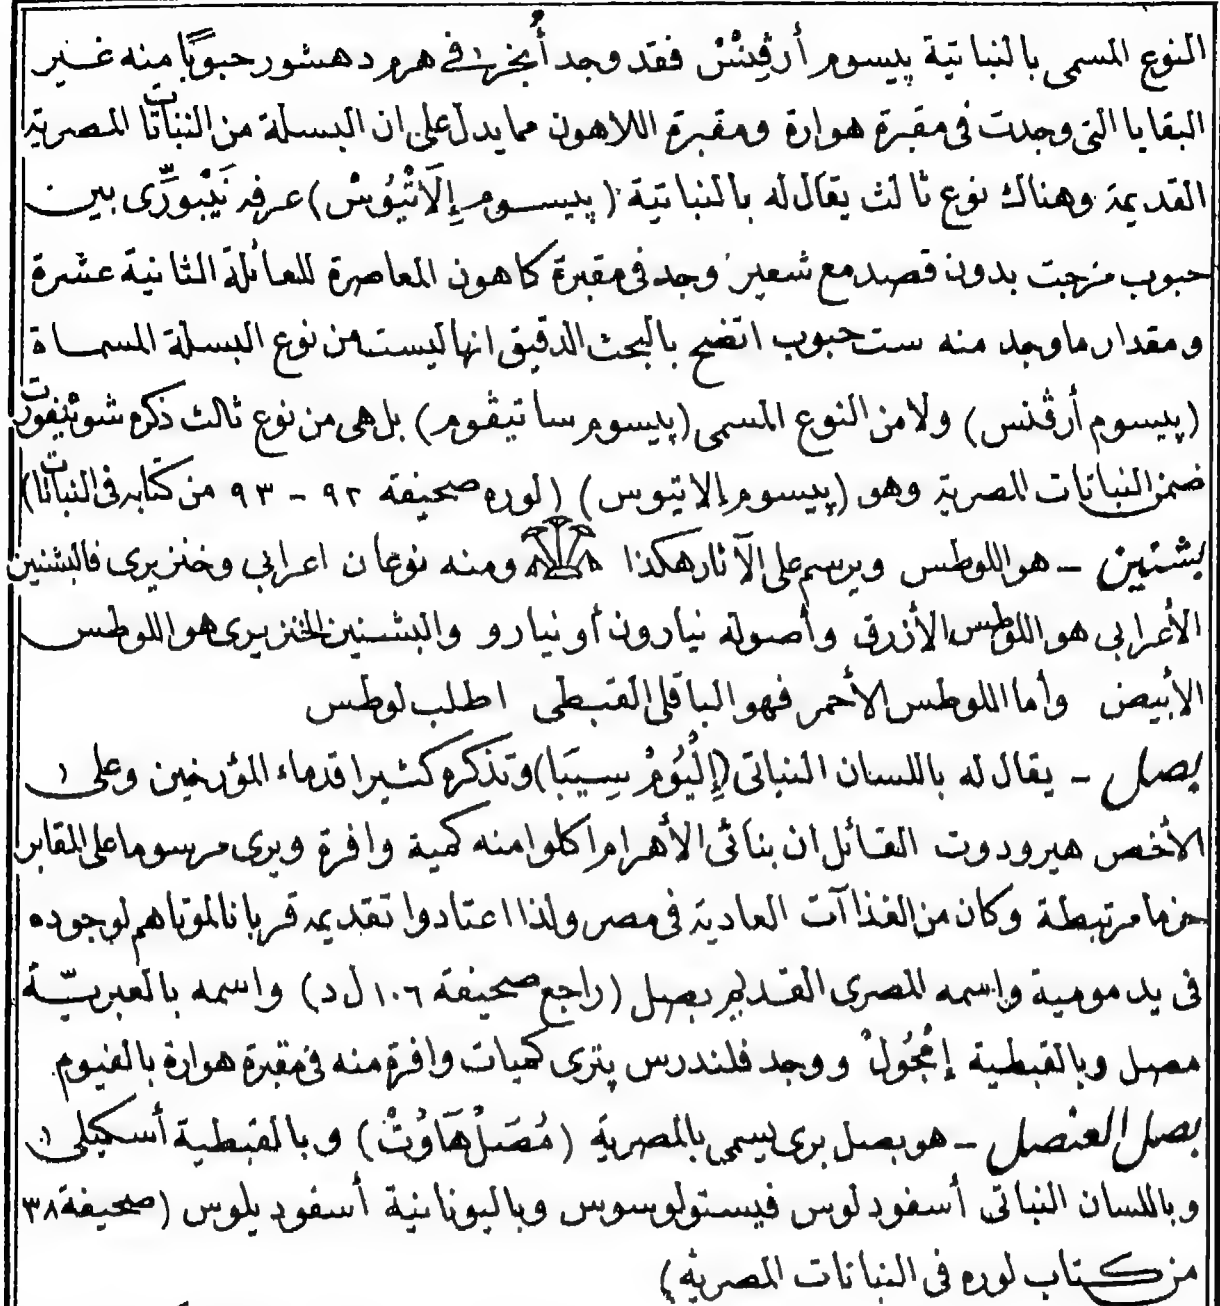 النوع المسمى بالنباتية پيسوم أرڤِنْسْ فقد وجد أُنجر في هرم دهشور حبوبًا منه غير
البقايا التى وجدت فى مقبرة هوارة ومقبرة اللاهون مما يدل على ان البسلة من النباتات المصرية
القديمة وهناك نوع ثالث يقال له بالنباتية (پيسوم إِلَاتْيُوسْ) عرفه نَيْبورِّى بين
حبوب مزجت بدون قصد مع شعير وجد فى مقبرة كاهون المعاصرة للعائلة الثانية عشرة
ومقدار ما وجد منه ست حبوب اتضح بالبحث الدقيق انها ليست من نوع البسلة المسماة
(پيسوم أرڤنس) ولا من النوع المسمى (پيسوم ساتيڤوم) بل هى من نوع ثالث ذكره شوينفورت
ضمن النباتات المصرية وهو (پيسوم إلاتيوس) (لوره صحيفة ٩٢ - ٩٣ من كتابه فى النباتات)
بشنين - هو اللوطس ويرسم على الآثار هكذا ومنه نوعان اعرابى وخنزيرى فالبشنين
الأعرابى هو اللوطس الأزرق وأصوله نيارون أو نيارو والبشنين الخنزيرى هو اللوطس
الأبيض وأما اللوطس الأحمر فهو الباقلى القبطى اطلب لوطس
بصل - يقال له باللسان النباتى (إِلْيُومْ سِيبَا) وتذكره كثيرا قدماء المؤرخين وعلى
الأخص هيرودوت القائل ان بنائى الأهرام اكلوا منه كمية وافرة ويرى مرسوما على المقابر
حزما مرتبطة وكان من الغذاآت العادية فى مصر ولذا اعتادوا تقديمه قربانا لموتاهم لوجوده
فى يد مومية واسمه المصرى القديم بصل (راجع صحيفة ١٠٦ ل د) واسمه بالعبريّة
مصل وبالقبطية إمْجُولْ ووجد فلندرس پترى كميات وافرة منه فى مقبرة هوارة بالفيوم
بصل العنصل - هو بصل برى يسمى بالمصرية (مُصَلْ هَاوُتْ) وبالقبطية أسكيلى
وباللسان النباتى أسفودلوس فيستولوسوس وباليونانية أسفوديلوس (صحيفة ٣٨
من كتاب لوره فى النباتات المصرية)